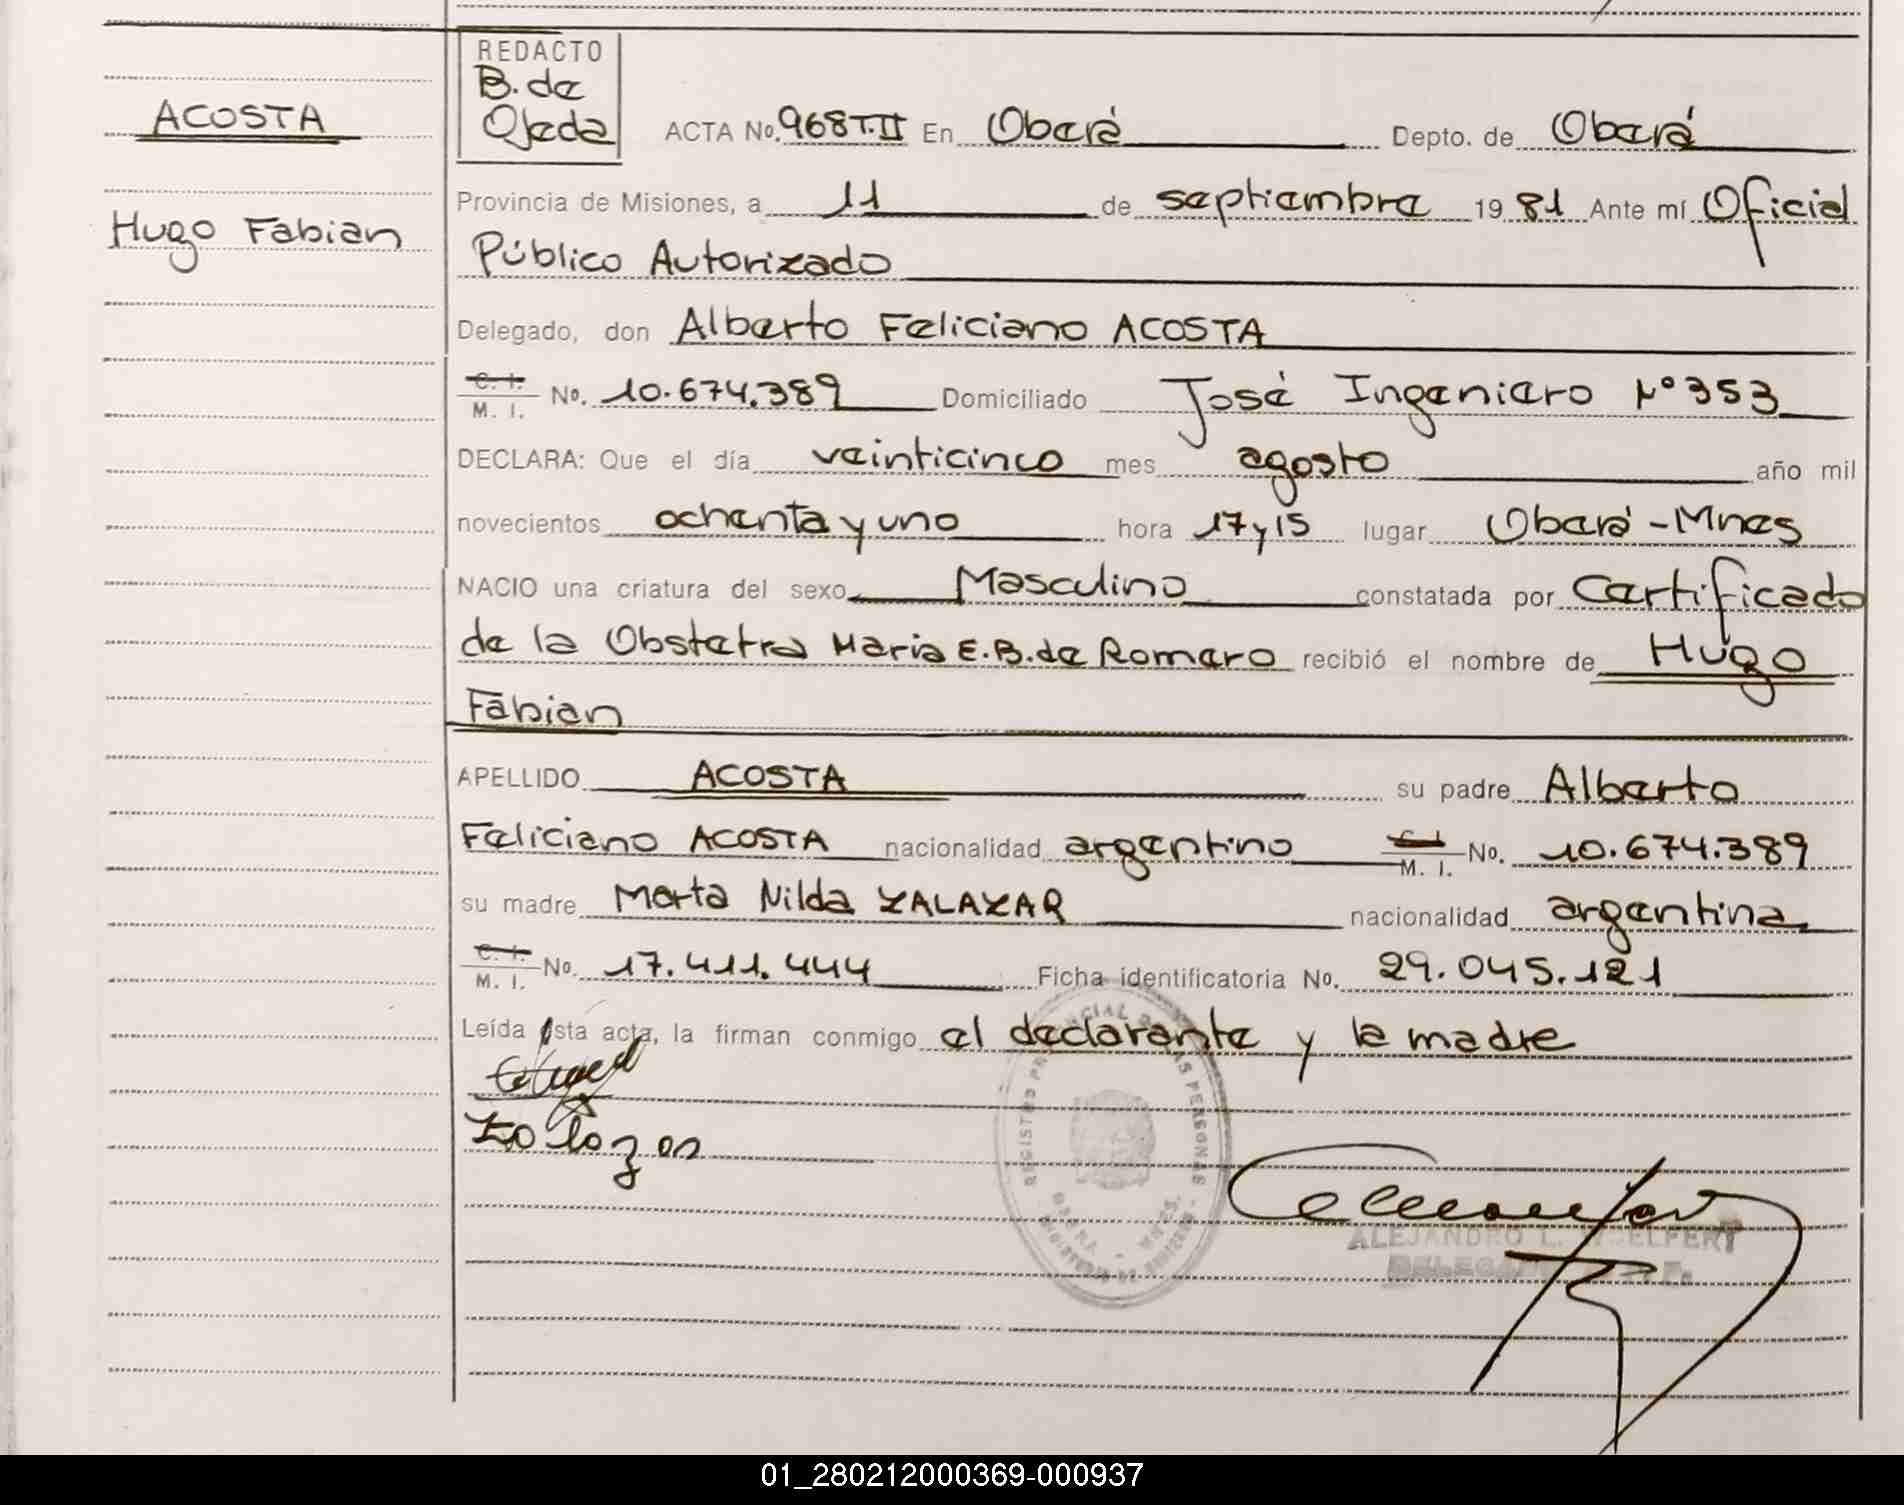 REDACTO
B. de
Ojeda
ACOSTA
Hugo Fabian
ACTA No. 968 T.II En Oberá Depto. de Oberá
Provincia de Misiones, a 11 de septiembre 19 81 Ante mí Oficial
Público Autorizado
Delegado, don Alberto Feliciano ACOSTA
C. I. M. I. No. 10.674.389 Domiciliado José Ingeniero Nº 353
DECLARA: Que el día veinticinco mes agosto año mil
novecientos ochenta y uno hora 17 y 15 lugar Oberá - Mnes
NACIO una criatura del sexo Masculino constatada por Certificado
de la Obstetra Maria E. B. de Romero recibió el nombre de Hugo
Fabian
APELLIDO ACOSTA su padre Alberto
Feliciano ACOSTA nacionalidad argentino C. I. M. I. No. 10.674.389
su madre Marta Nilda ZALAZAR nacionalidad argentina
C. I. M. I. No. 17.411.444 Ficha identificatoria No. 29.045.121
Leída esta acta, la firman conmigo el declarante y la madre
Zalazar
REGISTRO PROVINCIAL DE LAS PERSONAS
OBERA - MNES.
ALEJANDRO L.
01_280212000369-000937